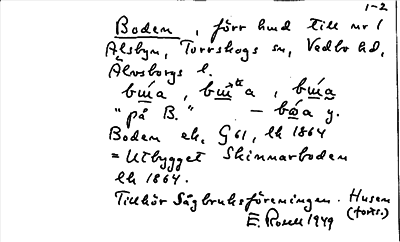 1-2
Boden, förr hmd till nr 1
Alsbyn, Torrskogs sn, Vedbo hd,
Älvsborgs l.
"på B." —
Boden ek. G 61, lk 1864
= Utbygget Skinnarboden
lk 1864.
Tillhör Sågbruksföreningen. Husen
(forts.)
E. Rosell 1949